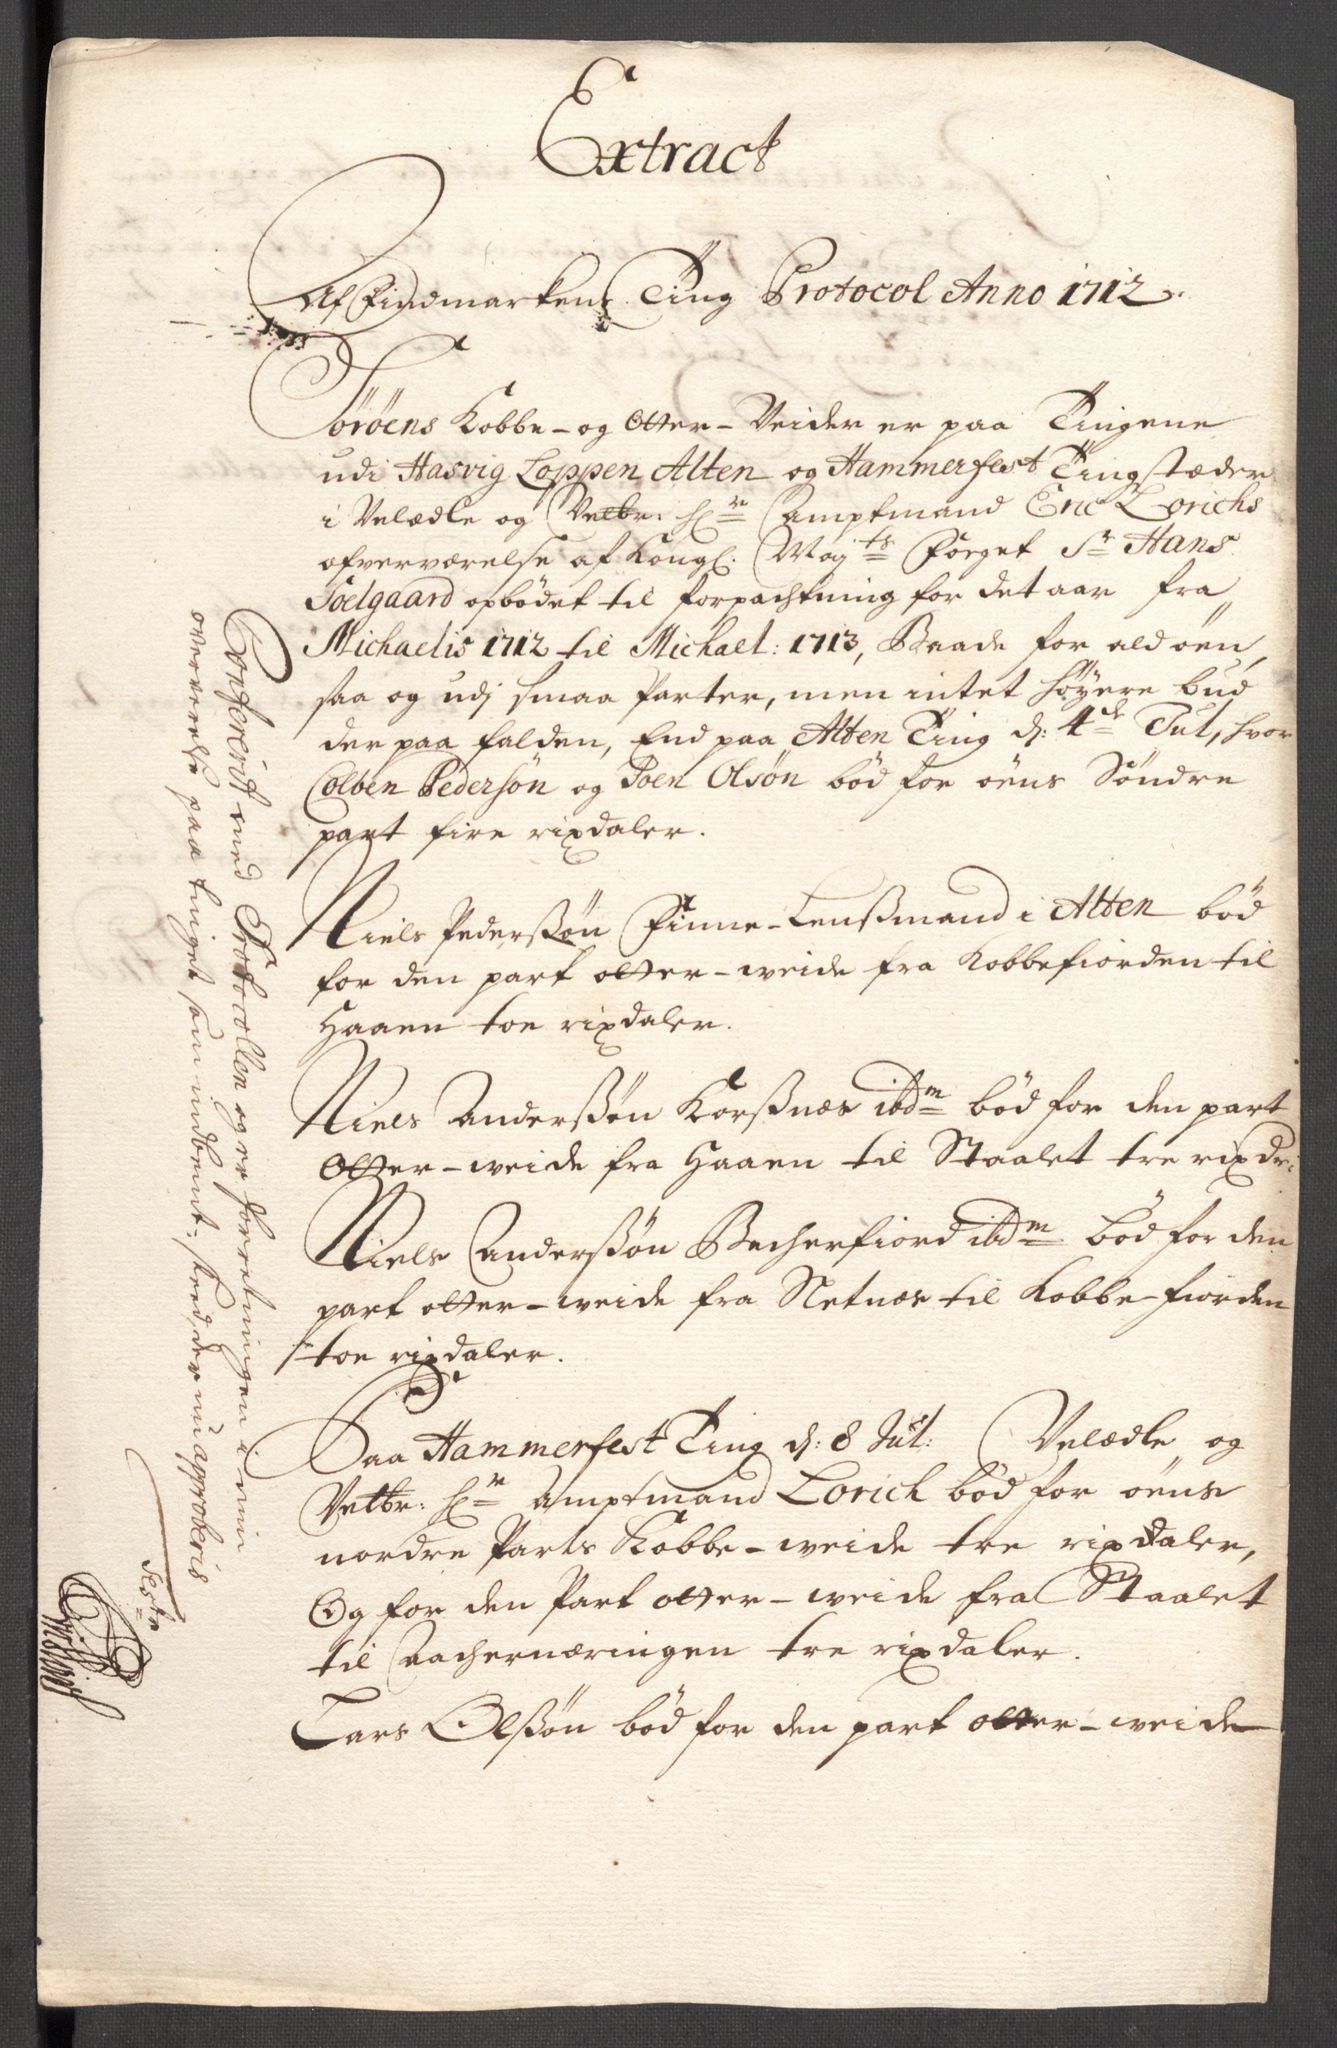 Extract
Af Findmarkens Ting Protocol Anno 1712.
Söröens Kobbe- og Otter-Veider er paa Tingene
udi Hasvig Loppen Alten og Hammerfest Tingstæder
i Velædle og Velbr: Hr: Amptmand Eric Lorichs
ofverværelse af Kongl: Mayts Foget Sr Hans
Soelgaard opbödet til forpachtning for det aar fra
Michaelis 1712 til Michael: 1713, Baade for ald öen,
saa og udj smaa Parter, men intet höyere bud
der paa falden, End paa Alten Ting d: 4de Jul, hvor
Colben Pedersön og Poen Olsön böd for öens Söndre
part fire rixdaler.
Niels Pederssön Finne-Lenssmand i Alten böd
for den part otter-weide fra Kobbefiorden til
Haaen toe rixdaler.
Niels Anderssön Korssnæs ibdm böd for den part
Otter-weide fra Haaen til Staalet tre rixdr:
Niels Anderssön Becherfiord ibdm böd for den
part otter-weide fra Netnæs til Kobbe-fiorden
toe rixdaler.
Paa Hammerfest Ting d: 8 Jul: Velædle og
Velbr: Hr: Amptmand Lorich böd for öens
nordre Parts Kobbe-weide tre rixdaler,
Og for den Part otter-weide fra Staalet
til Aachernæringen tre rixdaler.
Lars Olssön böd for den part otter-weide
Confererit med Protocollen og er forretningen i min
oververelse paa tinget som indbent: sted, der u approberis